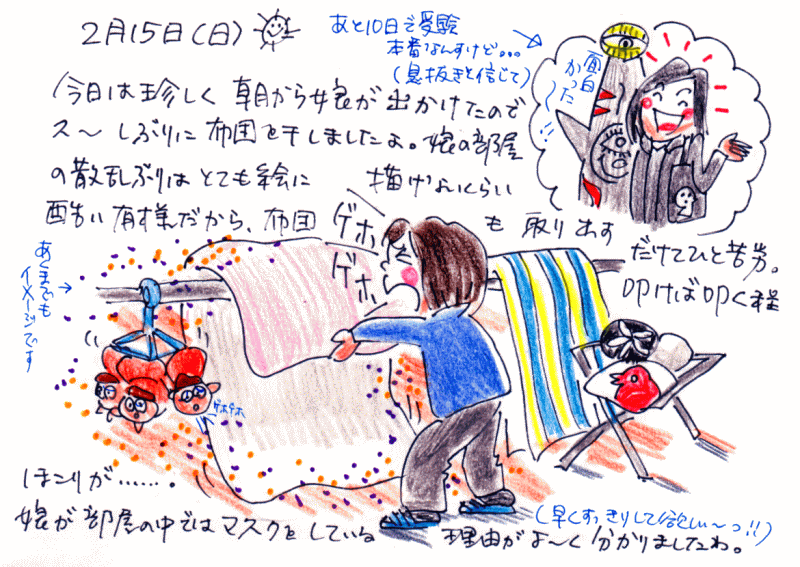 2月15日(日)
あと10日で受験
本番なんすけど。。。
(息抜きと信じて)
面白
かった
〜!!
今日は珍しく 朝から娘が 出かけたので
ス〜 しぶりに 布団を干しましたよ。娘の部屋
の散乱ぶりは とても絵に 描けないくらい
酷い 有様だから、布団 も 取り出す
だけでひと苦労。
叩けば叩く程
ゲホ
ゲホ
あくまでも
イメージです
ゲホゲホ
ほこりが……
(早くすっきりして欲しい〜っ!!)
娘が 部屋の中では マスクを している 理由が よ〜く 分かりましたわ。